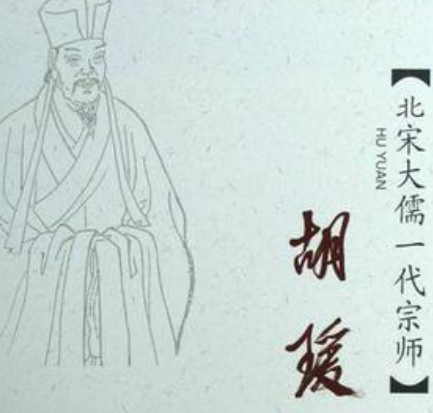 【北宋大儒一代宗师】
HU YUAN
胡瑗